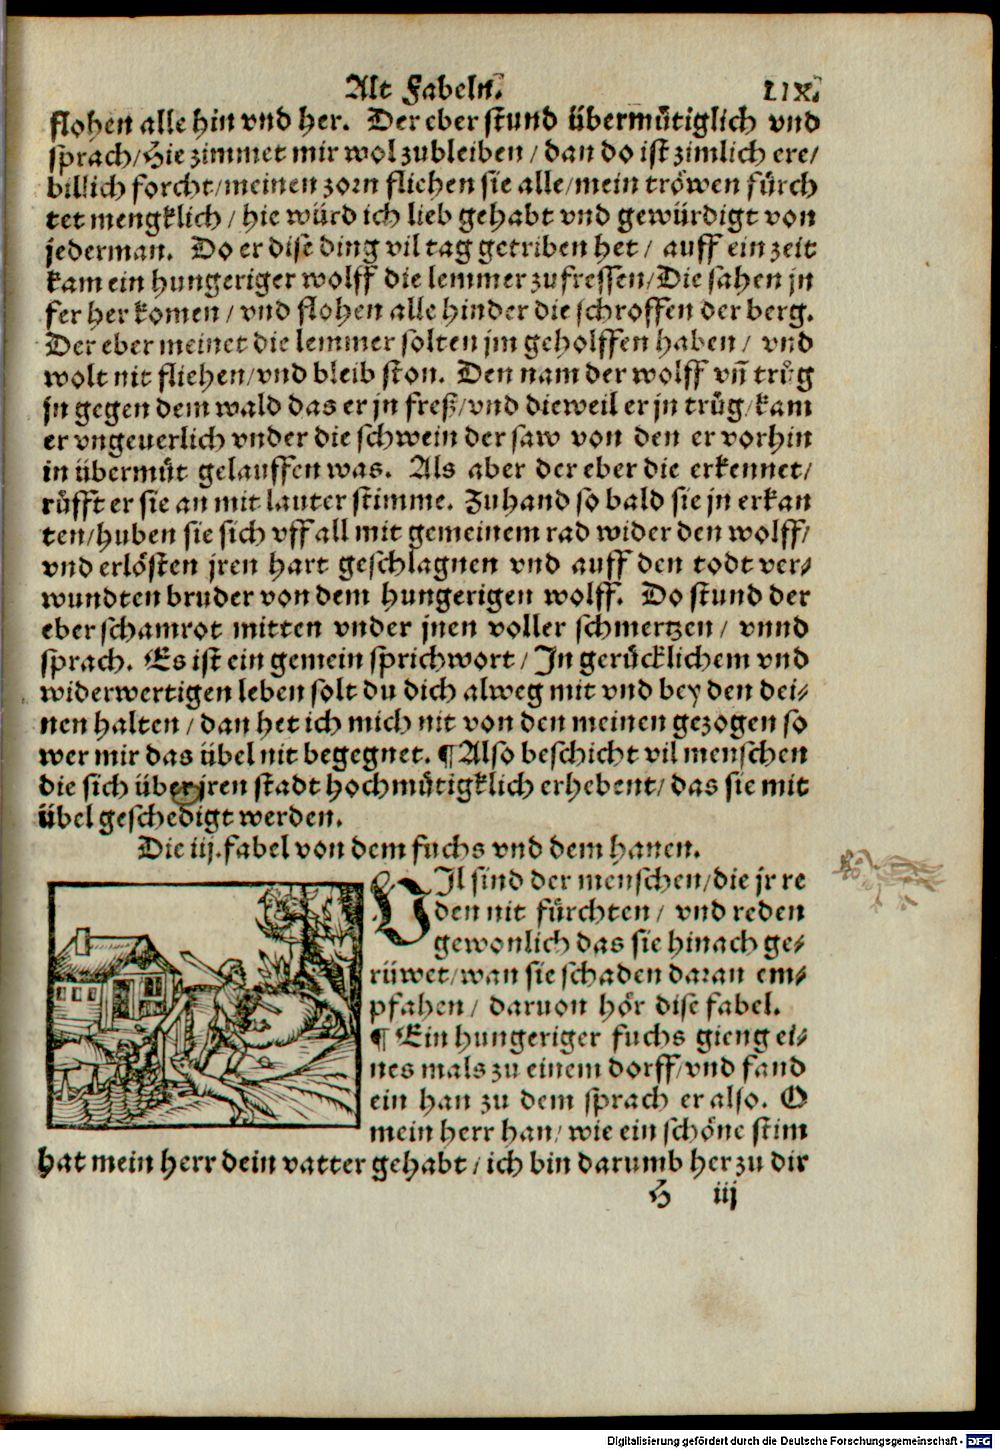 Alt Fabeln. LIX.
flohen alle hin vnd her. Der eber stund übermütiglich vnd
sprach/Hie zimmet mir wol zubleiben/dan do ist zimlich ere/
billich forcht/meinen zorn fliehen sie alle/mein tröwen fürch
tet mengklich/hie würd ich lieb gehabt vnd gewürdigt von
jederman. Do er dise ding vil tag getriben het/ auff ein zeit
kam ein hungeriger wolff die lemmer zufressen/Die sahen jn
fer her komen/vnd flohen alle hinder die schroffen der berg.
Der eber meinet die lemmer solten jm geholffen haben/ vnd
wolt nit fliehen/vnd bleib ston. Den nam der wolff vñ trůg
jn gegen dem wald das er jn freß/vnd dieweil er jn trůg/kam
er vngeuerlich vnder die schwein der saw von den er vorhin
in übermůt gelauffen was. Als aber der eber die erkennet/
růfft er sie an mit lauter stimme. Zuhand so bald sie jn erkan
ten/huben sie sich vff all mit gemeinem rad wider den wolff/
vnd erlösten jren hart geschlagnen vnd auff den todt ver⸗
wundten bruder von dem hungerigen wolff. Do stund der
eber schamrot mitten vnder jnen voller schmertzen/ vnnd
sprach. Es ist ein gemein sprichwort/ In gerücklichem vnd
widerwertigen leben solt du dich alweg mit vnd bey den dei⸗
nen halten/dan het ich mich nit von den meinen gezogen so
wer mir das übel nit begegnet. ¶Also beschicht vil menschen
die sich über jren stadt hochmütigklich erhebent/das sie mit
übel geschedigt werden.
Die iij.fabel von dem fuchs vnd dem hanen.
VIl sind der menschen/die jr re
den nit fürchten/ vnd reden
gewonlich das sie hinach ge⸗
rüwet/wan sie schaden daran em⸗
pfahen/ daruon hör dise fabel.
¶ Ein hungeriger fuchs gieng ei⸗
nes mals zu einem dorff/vnd fand
ein han zu dem sprach er also. O
mein herr han/wie ein schöne stim
hat mein herr dein vatter gehabt/ich bin darumb her zu dir
H iij
Digitalisierung gefördert durch die Deutsche Forschungsgemeinschaft - DFG